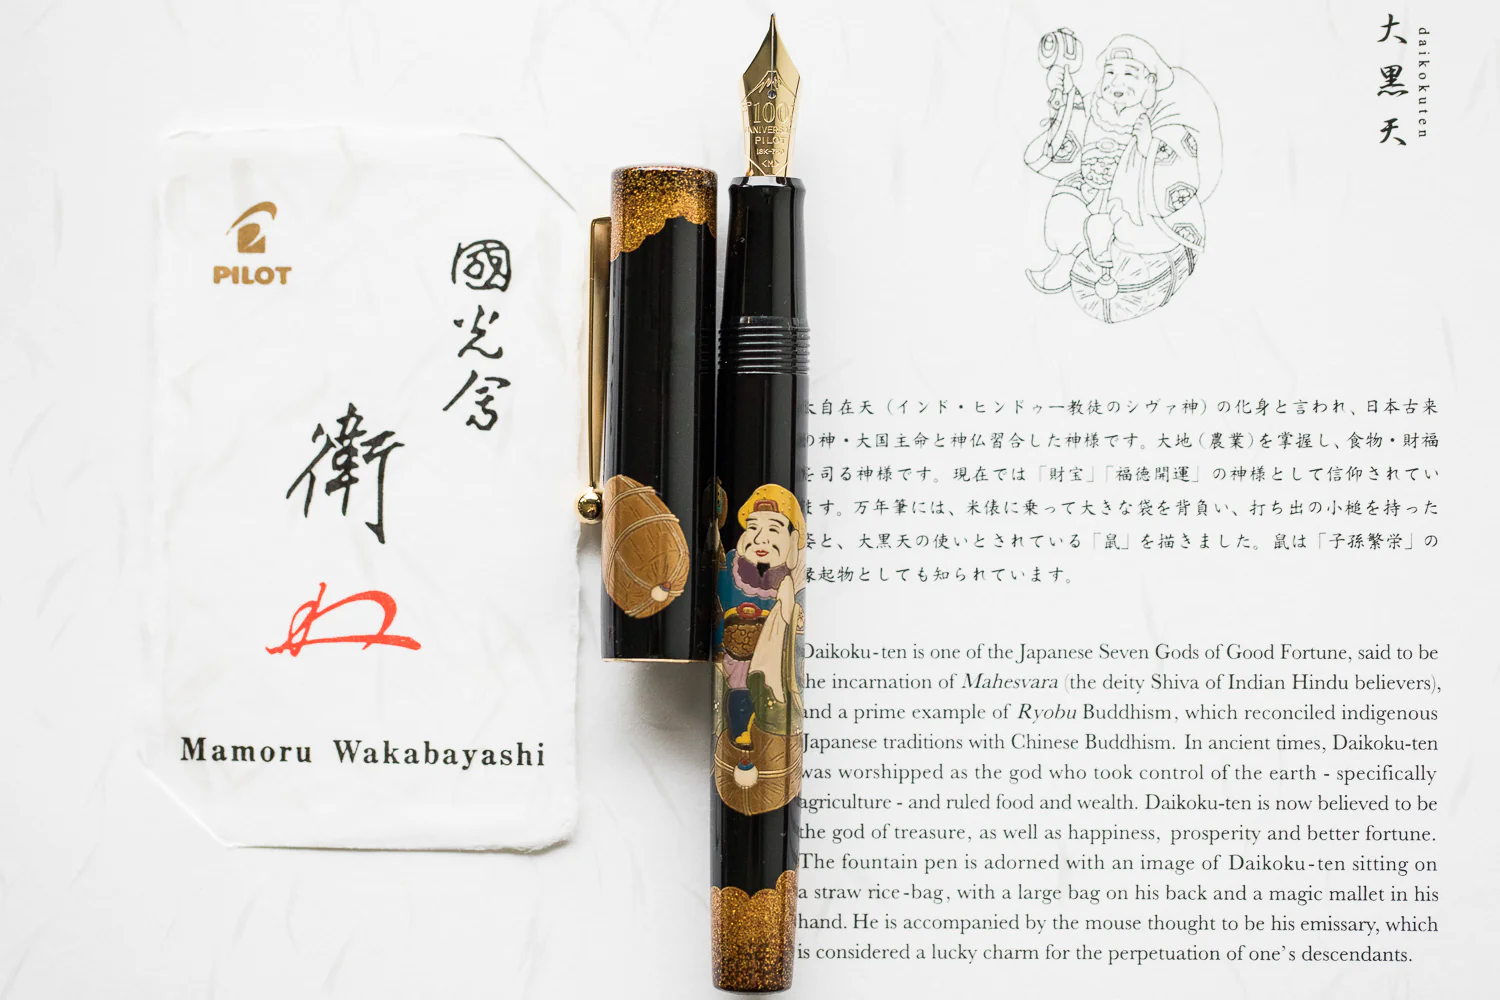 PILOT
國光會
衛
Mamoru Wakabayashi
100
ANNIVERS
PILOT
18K-750
<M>
大黒天
daikokuten
大自在天（インド・ヒンドゥー教徒のシヴァ神）の化身と言われ、日本古来
の神・大国主命と神仏習合した神様です。大地（農業）を掌握し、食物・財福
を司る神様です。現在では「財宝」「福徳開運」の神様として信仰されてい
ます。万年筆には、米俵に乗って大きな袋を背負い、打ち出の小槌を持った
姿と、大黒天の使いとされている「鼠」を描きました。鼠は「子孫繁栄」の
縁起物としても知られています。
Daikoku-ten is one of the Japanese Seven Gods of Good Fortune, said to be
the incarnation of Mahesvara (the deity Shiva of Indian Hindu believers),
and a prime example of Ryobu Buddhism, which reconciled indigenous
Japanese traditions with Chinese Buddhism. In ancient times, Daikoku-ten
was worshipped as the god who took control of the earth - specifically
agriculture - and ruled food and wealth. Daikoku-ten is now believed to be
the god of treasure, as well as happiness, prosperity and better fortune.
The fountain pen is adorned with an image of Daikoku-ten sitting on
a straw rice-bag, with a large bag on his back and a magic mallet in his
hand. He is accompanied by the mouse thought to be his emissary, which
is considered a lucky charm for the perpetuation of one's descendants.